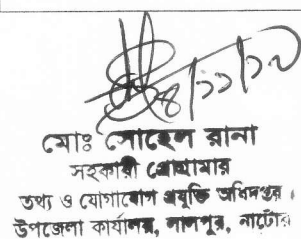 মোঃ সোহেল রানা
সহকারী প্রোগ্রামার
তথ্য ও যোগাযোগ প্রযুক্তি অধিদপ্তর।
উপজেলা কার্যালয়, লালপুর, নাটোর।